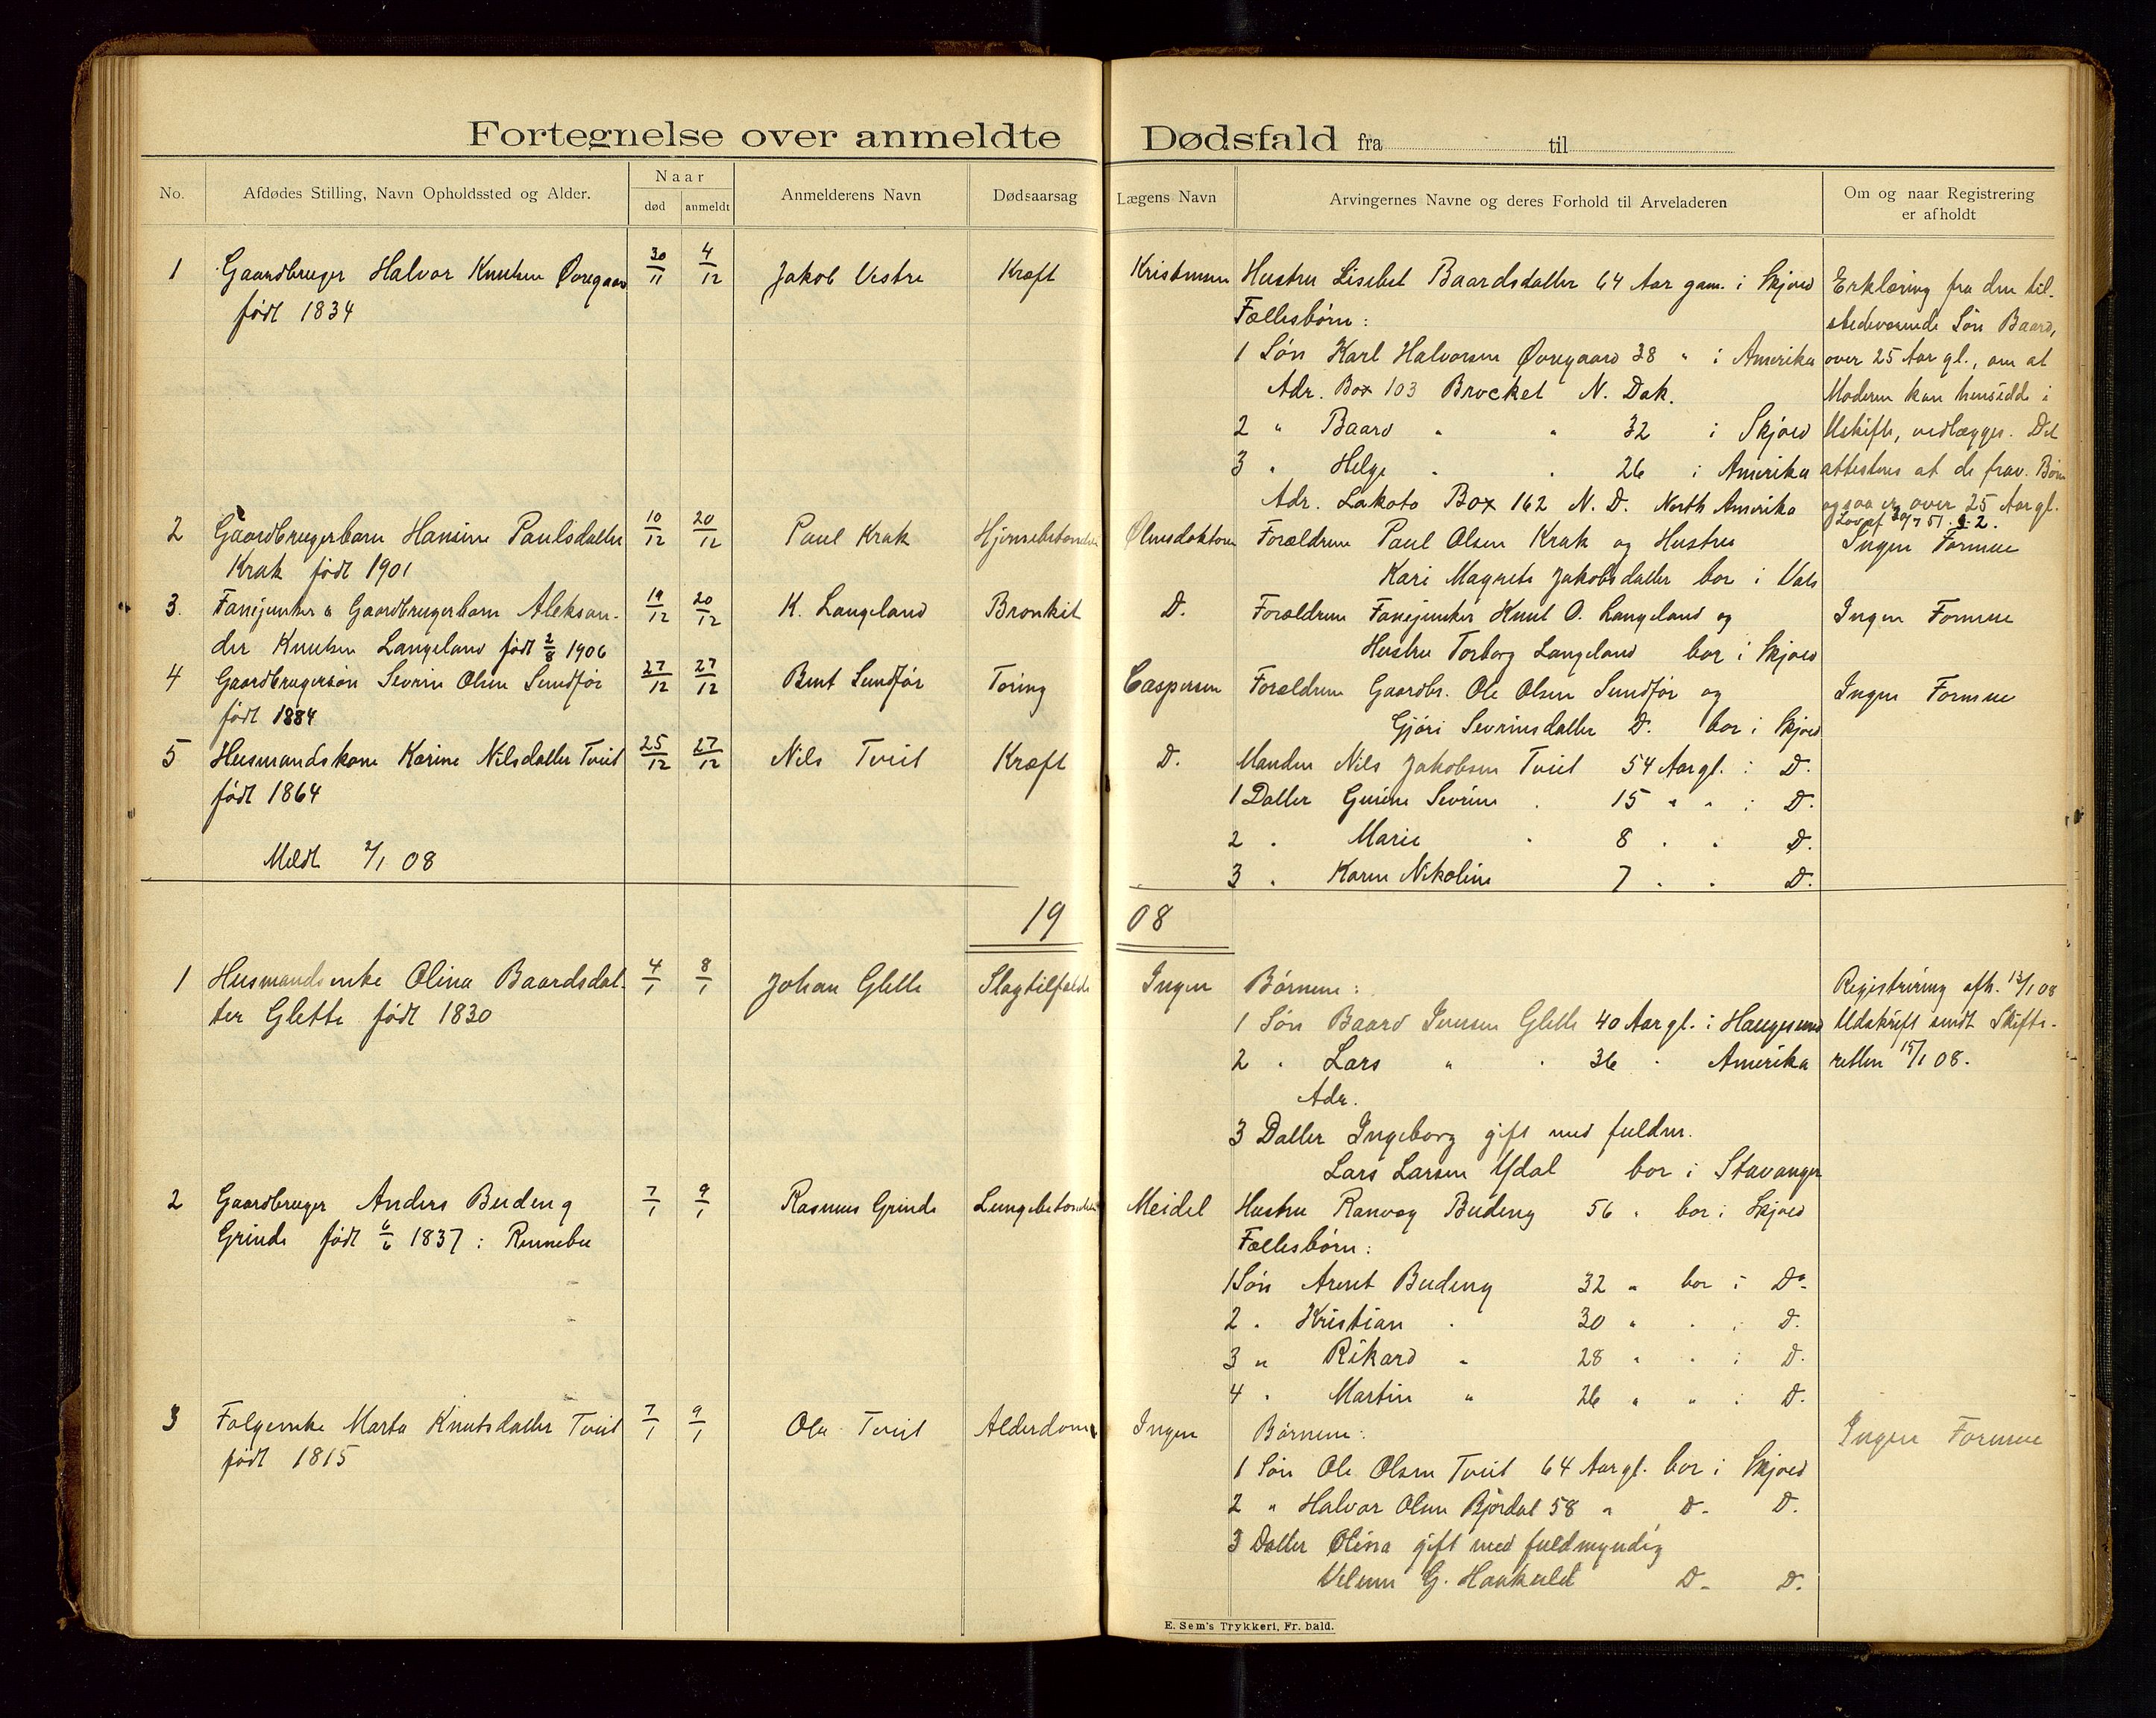 Fortegnelse over anmeldte Dødsfald fra til
No.
Afdødes Stilling, Navn Opholdssted og Alder.
Naar
død
anmeldt
Anmelderens Navn
Dødsaarsag
Lægens Navn
Arvingernes Navne og deres Forhold til Arveladeren
Om og naar Registrering
er afholdt
1 Gaardbruger Halvor Knutsen Øvregaard 30/11 4/12 Jakob Vestre Kræft Kristensen
født 1834
Hustru Lisebet Baardsdatter 64 Aar gam. i Skjold
Fællesbørn:
1 Søn Karl Halvorsen Øvregaard 38 " i Amerika
Adr. Box 103 Brocket N. Dak.
2 " Baard " " 32 i Skjold
3 " Helge " " 26 i Amerika
Adr. Lakoto Box 162 N. D. North Amerika
Erklæring fra den til-
stedeværende Søn Baard,
over 25 Aar gl., om at
Moderen kan hensidde i
Uskifte, vedlægges. Det
attesteres at de frav. Børn
ogsaa er over 25 Aar gl.
Lov af 30/7 51 § 2.
2 Gaardbrugerbarn Hansine Paulsdatter 10/12 20/12 Paul Krak Hjernebetændelse
Krak født 1901
Forældrene Paul Olsen Krak og Hustru
Kari Magrete Jakobsdatter bor i Vats
Ingen Formue
3. Fanejunker & Gaardbrugerbarn Aleksan- 19/12 20/12 K. Langeland Bronkit D.
der Knutsen Langeland født 2/8 1906
Forældrene Fanejunker Knut O. Langeland og
Hustru Torborg Langeland bor i Skjold
Ingen Formue
4 Gaardbrugersøn Sevrin Olsen Sundfør 27/12 27/12 Bent Sundfør Tæring Caspersen
født 1884
Forældrene Gaardbr. Ole Olsen Sundfør og
Gjøri Sevrinsdatter D. bor i Skjold
Ingen Formue
5 Husmandskone Karine Nilsdatter Tveit 25/12 27/12 Nils Tveit Kræft D.
født 1864
Manden Nils Jakobsen Tveit 54 Aar gl. i D.
1 Datter Gurine Sevrine " 15 " " i D.
2 " Marie " 8 " " D.
3 " Karen Nikoline 7 " " D.
Meldt 2/1 08
1908
1 Husmandsenke Olina Baardsdat- 4/1 8/1 Johan Glette Slagtilfælde Ingen
ter Glette født 1830
Børnene:
1 Søn Baard Iversen Glette 40 Aar gl. i Haugesund
2 " Lars " " 36 " Amerika
Adr.
3 Datter Ingeborg gift med fuldm.
Lars Larsen Ydal bor i Stavanger
Registrering afh. 13/1 08
Udskrift sendt Skifte-
retten 15/1 08.
2 Gaardbruger Anders Budeng 7/1 9/1 Rasmus Grinde Lungebetændelse Meidel
Grinde født 6/6 1837 i Rennebu
Hustru Ranvog Budeng 56 " bor i Skjold
Fællesbørn:
1 Søn Arent Budeng 32 " bor i Do
2 " Kristian " 30 " " i D.
3 " Rikard " 28 " " i D.
4 " Martin " 26 " " i D.
3 Folgeenke Marta Knutsdatter Tveit 7/1 9/1 Ole Tveit Alderdom Ingen
født 1815
Børnene:
1 Søn Ole Olsen Tveit 64 Aar gl. bor i Skjold
2 " Halvor Olsen Bjordal 58 " D. D.
3 Datter Olina gift med fuldmyndig
G. Haukelid D. D.
Ingen Formue
E. Sem's Trykkeri, Fr. hald.